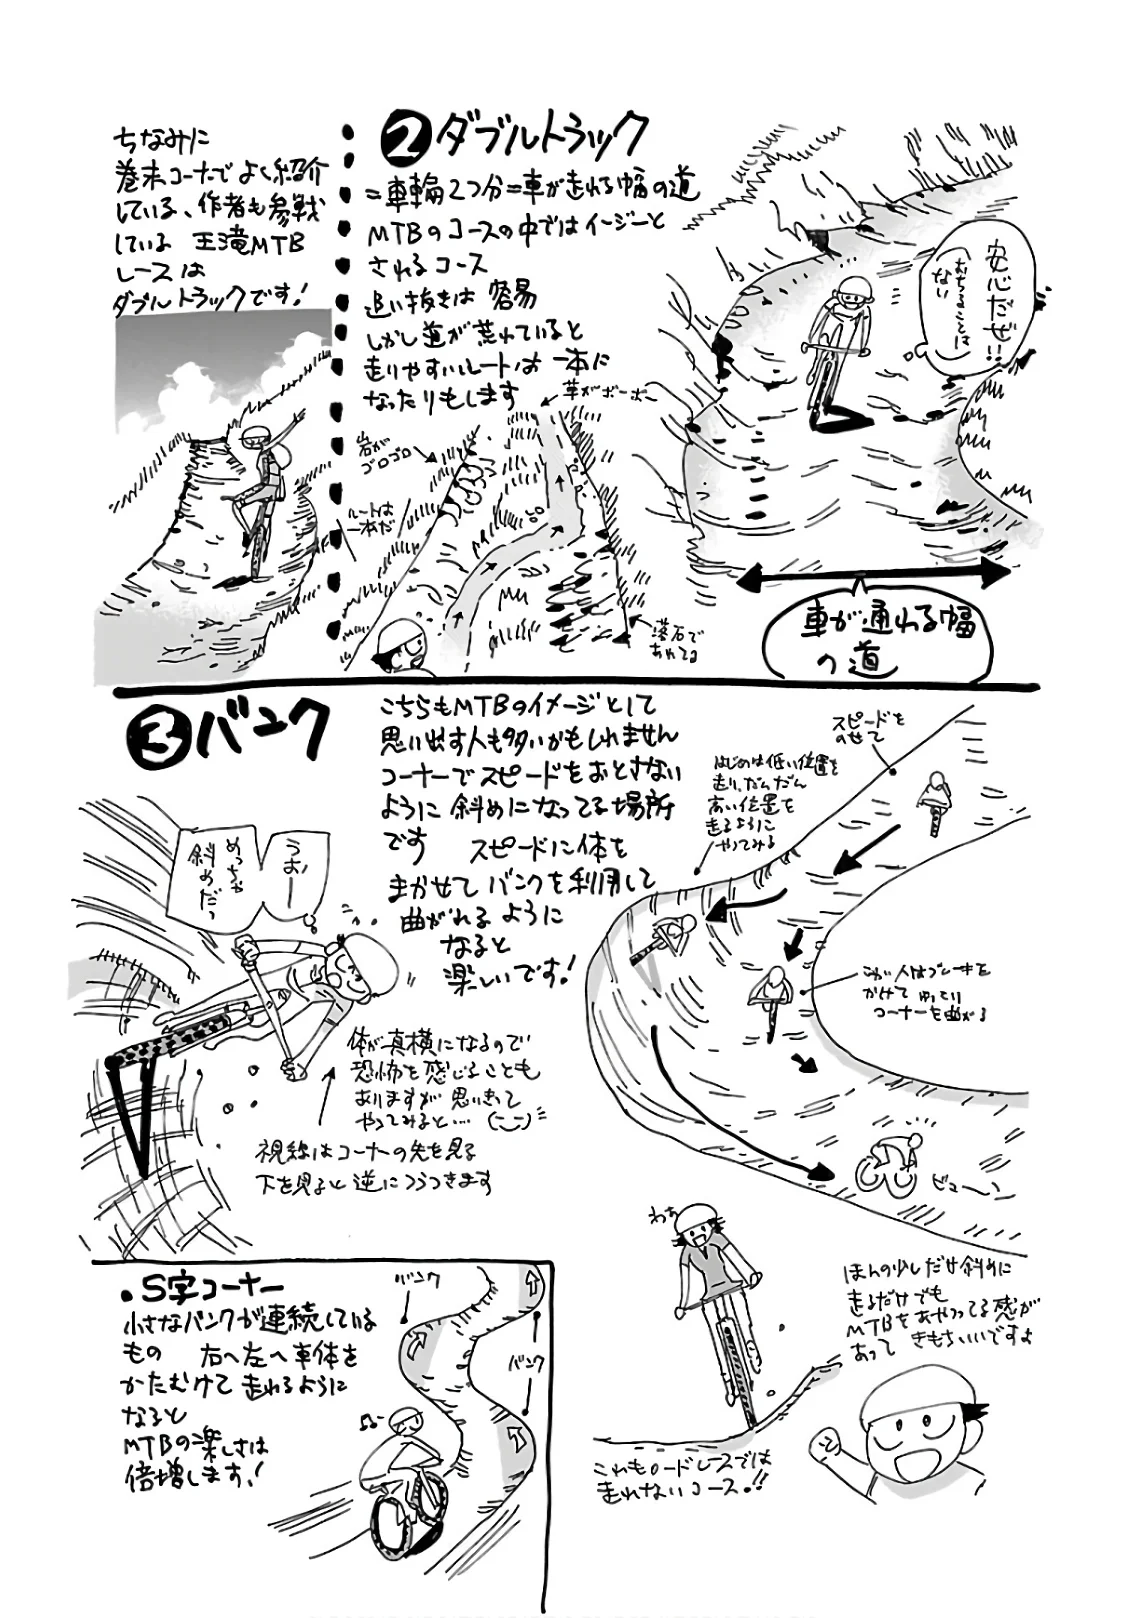 ②ダブルトラック
＝車輪2つ分＝車が走れる幅の道
MTBのコースの中ではイージーと
されるコース
追い抜きは容易
しかし道が荒れていると
走りやすいルートは一本に
なったりもします
安心だぜ!!
おちることは
ない
草がボーボー
岩が
ゴロゴロ
ルートは
一本だ
落石で
あれてる
車が通れる幅
の道
ちなみに
巻末コーナーでよく紹介
している、作者も参戦
している 王滝MTB
レースは
ダブルトラックです!
③バンク
こちらもMTBのイメージとして
思い出す人も多いかもしれません
コーナーでスピードをおとさない
ように斜めになってる場所
です スピードに体を
まかせてバンクを利用して
曲がれるように
なると
楽しいです!
スピードを
のせて
はじめは低い位置を
走り、だんだん
高い位置を
走るように
やってみる
こわい人はブレーキを
かけて ゆっくり
コーナーを曲がる
ビューーン
うおー
めっちゃ
斜めだっ
体が真横になるので
恐怖を感じることも
ありますが思いきって
やってみると…
視線はコーナーの先を見る
下を見ると逆にふらつきます
わぁ
ほんの少しだけ斜めに
走るだけでも
MTBをあやつってる感が
あって きもちいいですよ
これもロードレースでは
走れないコース!!
・S字コーナー
小さなバンクが連続している
もの 右へ左へ車体を
かたむけて走れるように
なると
MTBの楽しさは
倍増します!
バンク
バンク